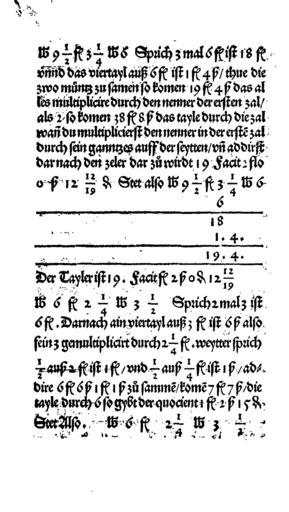 W 9 1/2 fl 3 1/4 W 6 Sprich 3 mal 6 fl ist 18 fl
vnnd das viertayl auß 6 fl ist 1 fl 4 ß / thue die
zwo müntz zu samen so komen 19 fl 4 ß das al
les multiplicire durch den nenner der ersten zal /
als 2 so komen 38 fl 8 ß das tayle durch die zal
wañ du multiplicierst den nenner in der erstẽ zal
durch sein gantzes auff der seytten / vñ addirst
dar nach den zeler dar zů wirdt 19 Facit 2 flo
0 ß 12 12/19 ₰ Stet also W 9 1/2 fl 3 1/4 W 6
6
18
1. 4.
19. 4.
Der Tayler ist 19. Facit fl 2 ß 0 ₰ 12 12/19
W 6 fl 2 1/4 W 3 1/2 Sprich 2 mal 3 ist
6 fl. Darnach ain viertayl auß 3 fl ist 6 ß also
sein 3 gan multiplicirt durch 2 1/4 fl. weytter sprich
1/2 auß 2 fl ist 1 fl / vnd 1/2 auß 1/4 fl ist 1 ß / ad-
dire 6 fl 6 ß 1 fl 1 ß zů sammẽ / komẽ 7 fl 7 ß / die
tayle durch 6 so gybt der quocient 1 fl 2 ß 15 ₰
Stet Also. W 6 fl 2 1/4 W 3 1/2